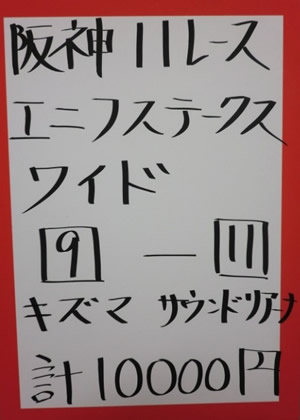 阪神11レース
エニフステークス
ワイド
9 — 11
キズマ サウンドリアーナ
計10000円